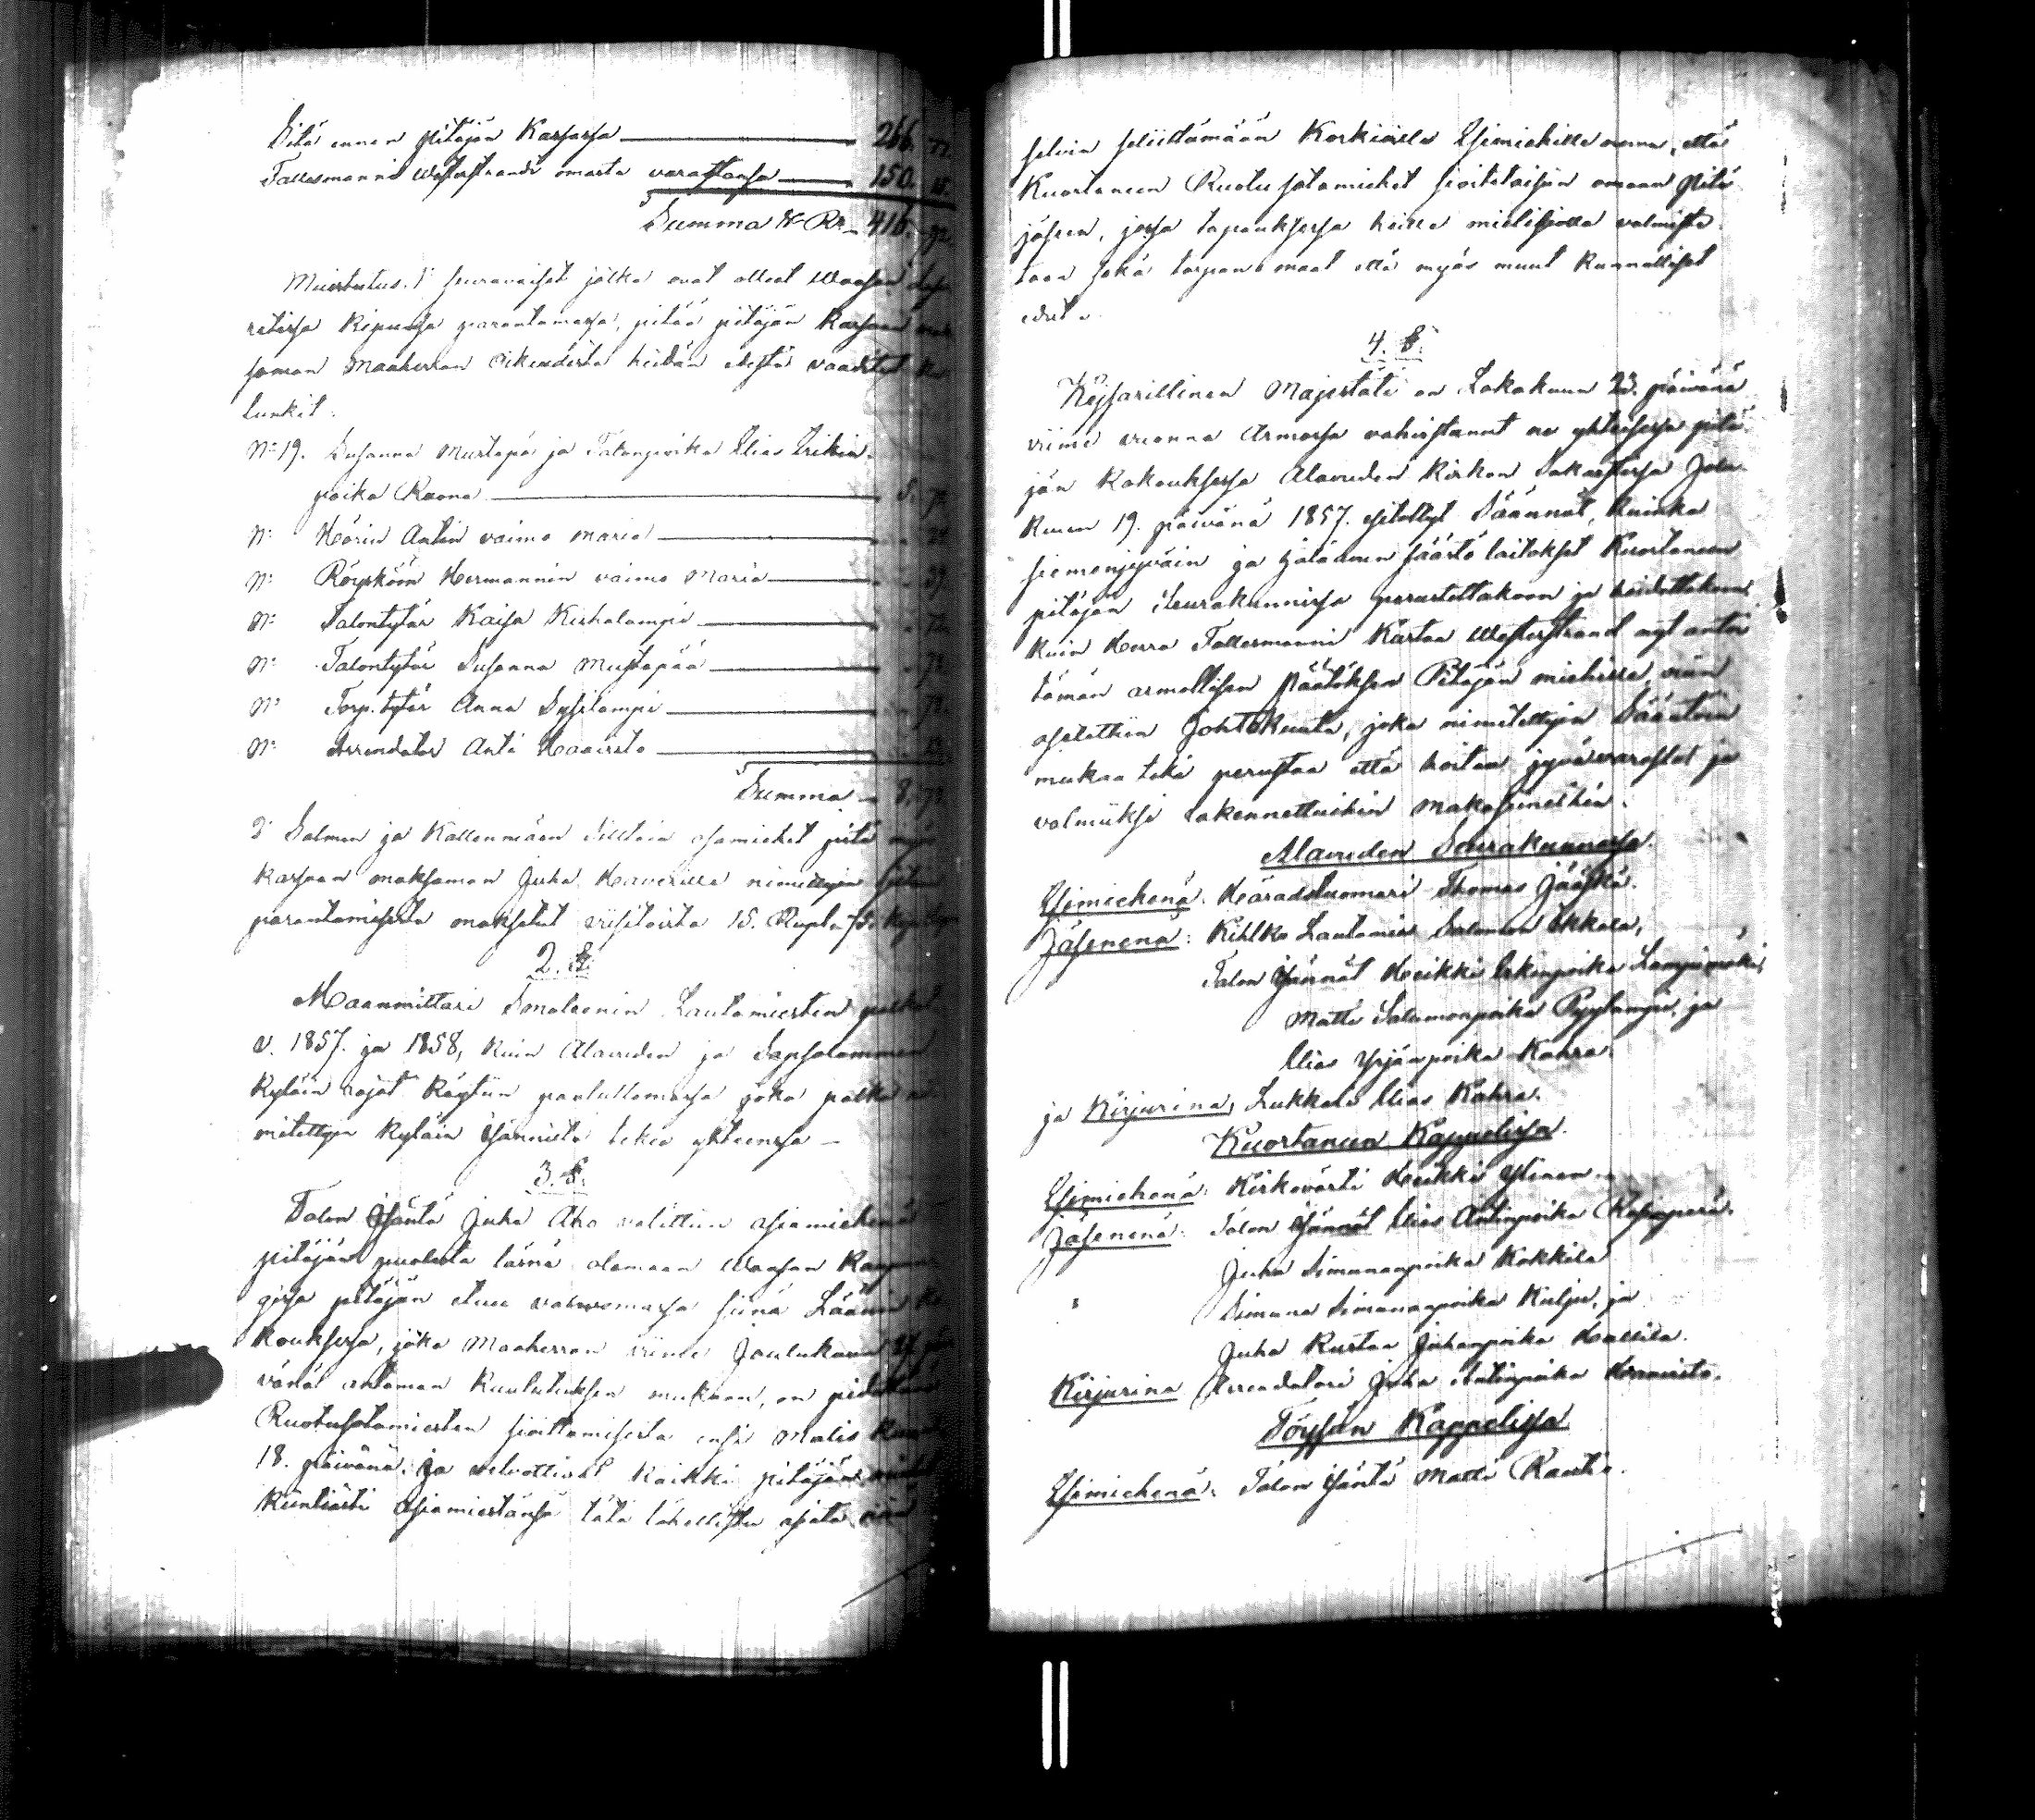 Sitä ennen pitäjän Kassassa 266. 77.
Fallesmanni Westerstrandi omasta varastansa 150. 15.
Summa 416. 92.
Muistutus. 1° seuravaiset jotka ovat olleet Waasan
retissa kipunsa parantamassa, pitää pitäjän Kassan
saman Maaherran oikeudesta heidän edestä vaaditut
lunkit.
No 19. Susanna Mustapä ja Talonpoika Elias Erikin
poika Ruona 5. 72.
No Hörin Antin vaimo Maria
No Röyskön Hermannin vaimo Maria
No Talontytär Kaisa Kirkalampi 72.
No Talontytär Susanna Mustapää 72.
No Torp. tytär Anna Sysilampi 72.
No Arrendator Anti Haavisto
Summa 8. 72.
2° Salmen ja Kattonmäen Silltain osamiehet pitä myös
kassaan maksaman Juha Haverilla nimitettyin siltain
parantamisesta maksetut viisitoista 15. Rupla 75.
2. §
Maanmittari Smaleenin Lautamiesten palkat
v. 1857. ja 1858, kuin Alavuden ja Sapsalammen
kyläin rajat käytiin paaluttamassa joka palka ni-
mitettyin kyläin Isännistä tekee yhteensä
3. §
Talon Isäntä Juha Aho valittiin asiamieheksi
pitäjän puolesta läsnä olemaan Waasan Kaupun-
gissa pitäjän etuu valvomassa siinä Läänin Ko-
kouksessa, joka Maaherran viime Joulukuun 27 päi-
vänä antaman Kuulutuksen mukaan, on pidettävä
Ruotusotamiesten sioittamisesta ensi Malis Kuun
18. päivänä. Ja velvottivat kaikki pitäjän miehet
kiintiästi Asiamiestänsä tätä tähellistä asiata niin
selvin selvittämään Korkialla Esimiehille omma, että
Kuortaneen Ruotu sotamiehet sioitetaisiin omaan Pitä-
jäseen, jossa tapauksessa heille mielisiolla valmiste-
taan sekä torpan maat että myös muut kunnalliset
edut.
4. §
Keisarillinen Majestäti on Lokakuun 23. päivänä
viime vuonna Armossa vahvistanut ne yhteisessä pitä-
jän kokouksessa Alavuden kirkon Sakastissa Jolu-
kuun 19. päivänä 1857. esitellyt Säännöt, kuinka
siemenjyväin ja hätäavun säästö laitokset Kuortaneen
pitäjän Seurakunnissa perustettakoon ja hoidettakoon
kuin Herra Fallesmanni Kustaa Westerstrand nyt antoi
tämän armollisen päätöksen Pitäjän miehille, niin
asetettiin Johtokunta, joka nimitettyin Sääntöin
mukaa tekä perustaa että hoitaa jyvävarastot ja
valmiiksi rakennettuihin Makasineihin.
Alavuden Seurakunnassa.
Esimiehenä. Häradstuomari Thomas Jääskä.
Jäsenenä: Kihlko Lautamies Salomon Ekkala,
Talon Isännät Heikki Erkinpoika Lampimäki,
Matti Salomonpoika Pyylampi, ja
Elias Yrjänpoika Kahra.
ja Kirjurina, Lukkari Elias Kahra.
Kuortaneen Kappelissa.
Esimiehenä: Kirkovärti Heikki Ylinen
Jäsenenä: Talon Isännät Elias Antinpoika Ruhanperä.
Juha Simunanpoika Kokkila
Simuna Simunanpoika Kulju, ja
Juha Kustaa Juhanpoika Hallila.
Kirjurina Arrendatori Juha Antinpoika Haavisto.
Töysän Kappelissa
Esimiehenä: Talon Isäntä Matti Rantu.